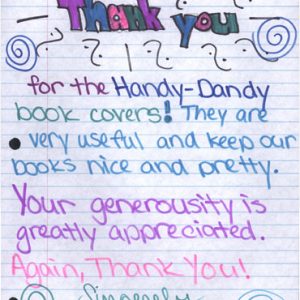 Thank you
for the Handy-Dandy
book covers! They are
very useful and keep our
books nice and pretty.
Your generousity is
greatly appreciated.
Again, Thank You!
Sincerely